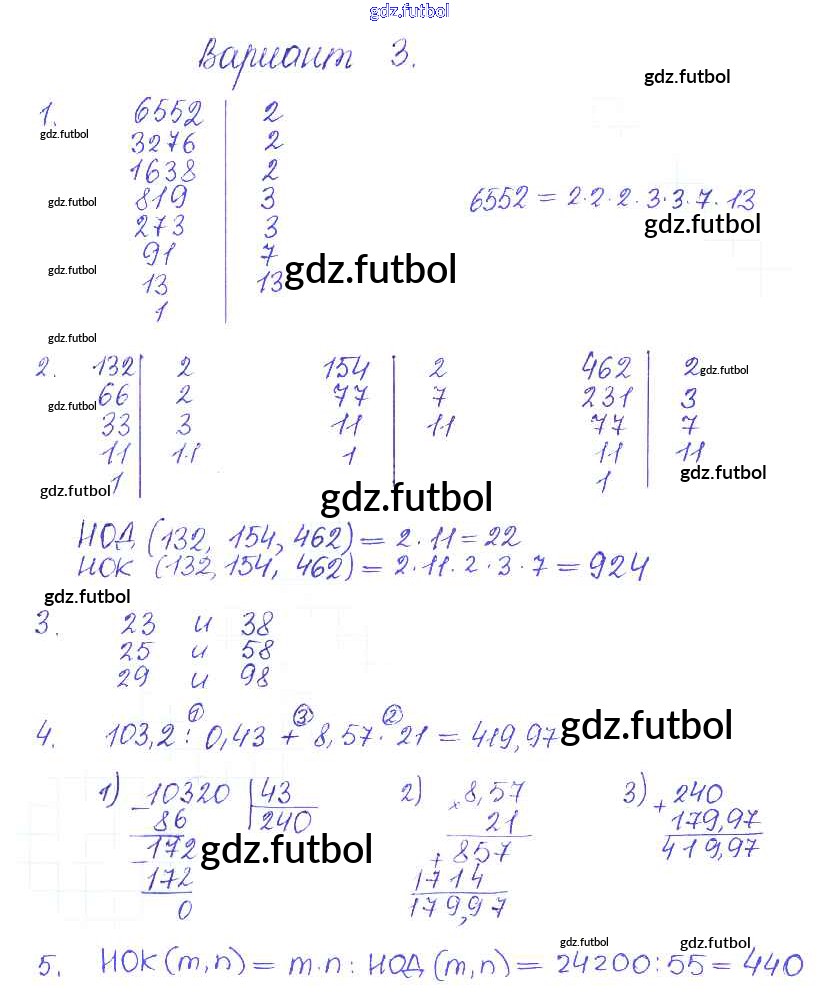 gdz.futbol
Вариант 3.
gdz.futbol
1. 6552 | 2
gdz.futbol
3276 | 2
1638 | 2
gdz.futbol 819 | 3 6552 = 2·2·2·3·3·7·13
273 | 3 gdz.futbol
91 | 7
gdz.futbol 13 | 13 gdz.futbol
1
gdz.futbol
2. 132 | 2 154 | 2 462 | 2 gdz.futbol
gdz.futbol 66 | 2 77 | 7 231 | 3
33 | 3 11 | 11 77 | 7
11 | 11 1 11 | 11
gdz.futbol 1 gdz.futbol 1 gdz.futbol
НОД (132, 154, 462) = 2·11 = 22
НОК (132, 154, 462) = 2·11·2·3·7 = 924
gdz.futbol
3. 23 и 38
25 и 58
29 и 98
① ③ ②
4. 103,2 : 0,43 + 8,57 · 21 = 419,97 gdz.futbol
1) 10320 | 43 2) × 8,57 3) + 240
− 86 | 240 21 179,97
− 172 gdz.futbol + 857 419,97
172 1714
0 179,97
gdz.futbol gdz.futbol
5. НОК (m,n) = m·n : НОД (m,n) = 24200 : 55 = 440